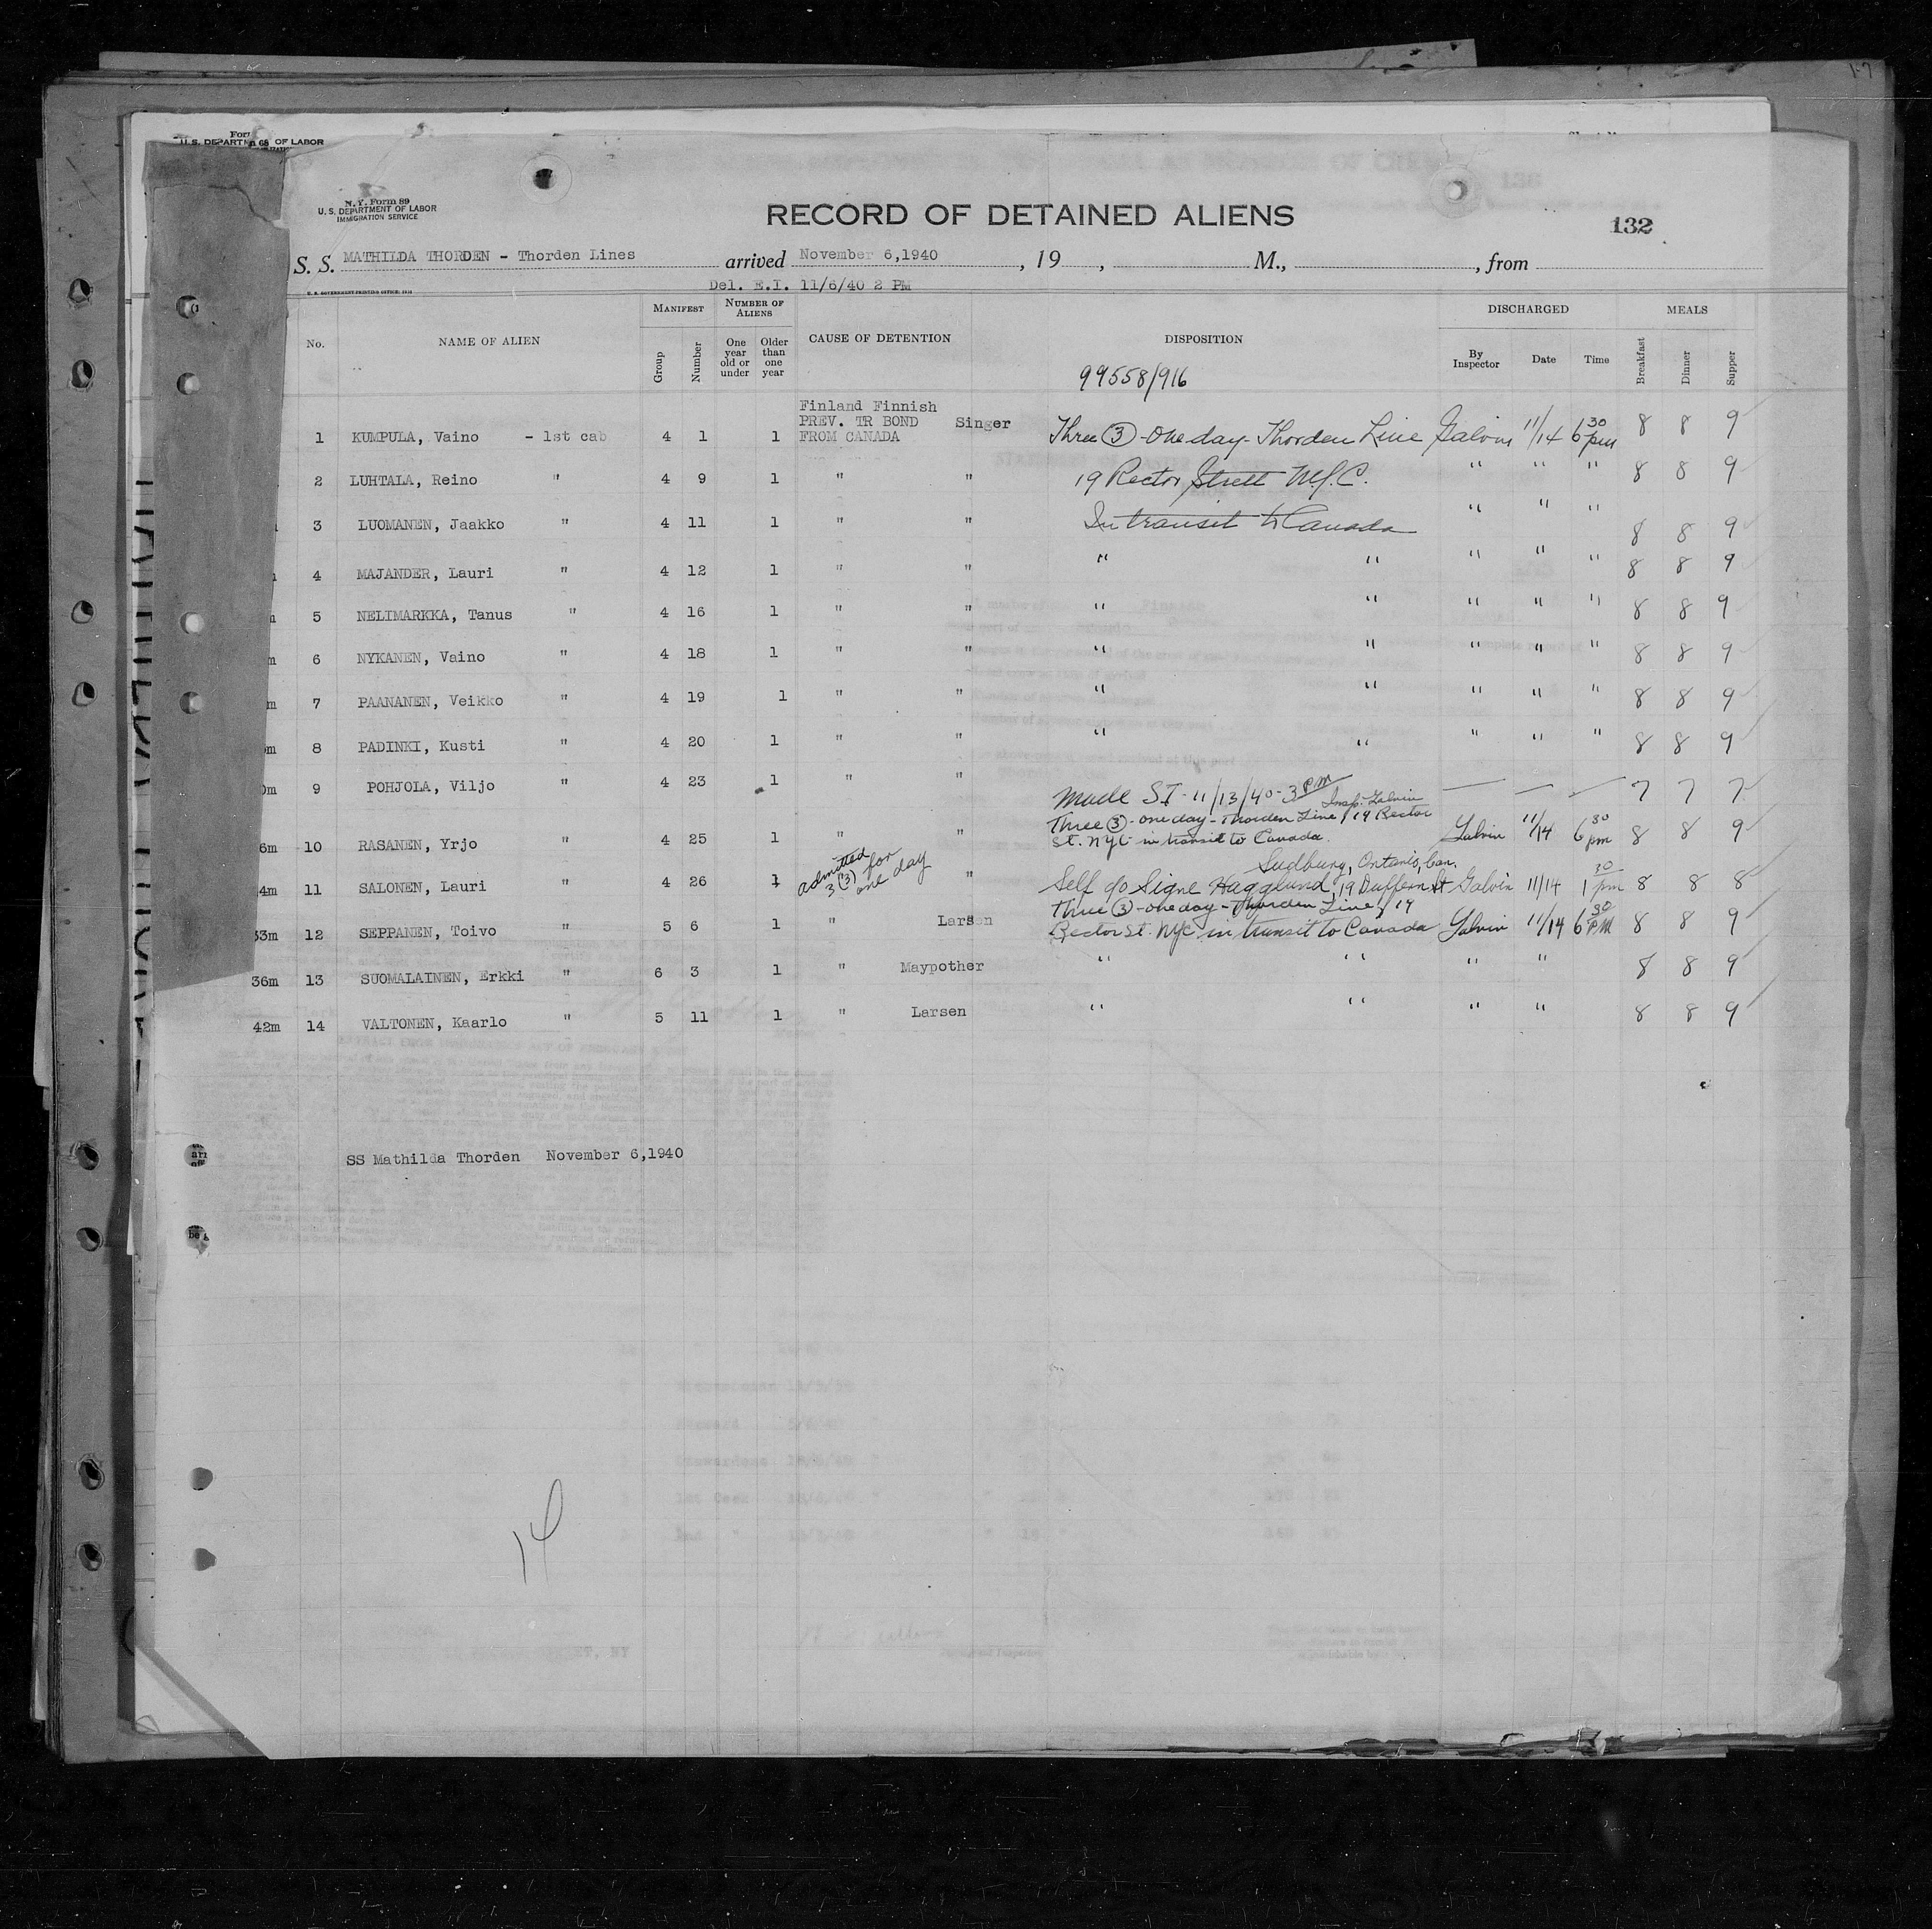 U. S. DEPARTM 68 OF LABOR
N. Y. Form 89
U. S. DEPARTMENT OF LABOR
IMMIGRATION SERVICE
RECORD OF DETAINED ALIENS
132
S. S. MATHILDA THORDEN - Thorden Lines arrived November 6,1940 , 19 , M., , from
Del. E.I. 11/6/40 2 PM
U. S. GOVERNMENT PRINTING OFFICE
No. NAME OF ALIEN MANIFEST Group Number NUMBER OF ALIENS One year old or under Older than one year CAUSE OF DETENTION DISPOSITION DISCHARGED By Inspector Date Time MEALS Breakfast Dinner Supper
99558/916
Finland Finnish
PREV. TR BOND Singer
1 KUMPULA, Vaino - 1st cab 4 1 1 FROM CANADA Three (3) - one day - Thorden Line Galvin 11/14 6 30 pm 8 8 9
2 LUHTALA, Reino " 4 9 1 " " 19 Rector Street N.Y.C. " " " 8 8 9
3 LUOMANEN, Jaakko " 4 11 1 " " In transit to Canada " " " 8 8 9
4 MAJANDER, Lauri " 4 12 1 " " " " " " " 8 8 9
5 NELIMARKKA, Tanus " 4 16 1 " " " " " " " 8 8 9
6 NYKANEN, Vaino " 4 18 1 " " " " " " " 8 8 9
7 PAANANEN, Veikko " 4 19 1 " " " " " " " 8 8 9
8 PADINKI, Kusti " 4 20 1 " " " " " " " 8 8 9
9 POHJOLA, Viljo " 4 23 1 " " Made SI - 11/13/40 - 3 PM — — — 7 7 7
Insp. Galvin
Three (3) - one day - Thorden Line, 19 Rector
10 RASANEN, Yrjo " 4 25 1 " " St. NYC in transit to Canada Galvin 11/14 6 30 pm 8 8 9
admitted
3 (3) for
one day
Sudbury, Ontario, Can.
4m 11 SALONEN, Lauri " 4 26 1 " Self c/o Signe Hagglund, 19 Dufferin St Galvin 11/14 1 30 pm 8 8 8
Three (3) - one day - Thorden Line, 19
33m 12 SEPPANEN, Toivo " 5 6 1 " Larsen Rector St. NYC in transit to Canada Galvin 11/14 6 30 PM 8 8 9
36m 13 SUOMALAINEN, Erkki " 6 3 1 " Maypother " " " " 8 8 9
42m 14 VALTONEN, Kaarlo " 5 11 1 " Larsen " " " " 8 8 9
SS Mathilda Thorden November 6,1940
14